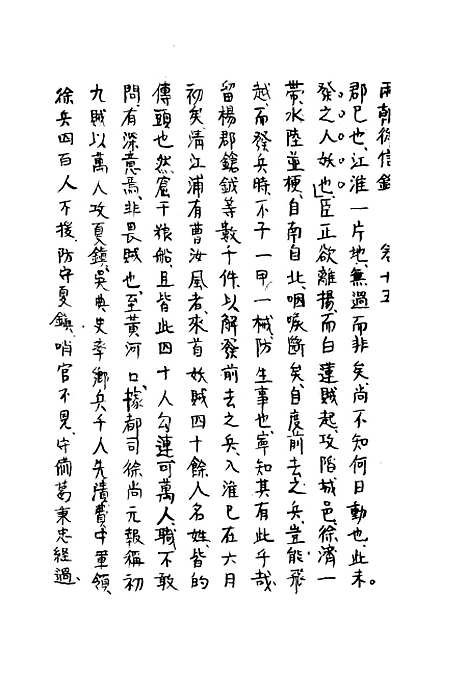 兩朝從信錄 卷十五
郡已也、江淮一片地、無過而非矣、尚不知何日動也、此未。
發之人妖也、臣正欲離揚、而白蓮賊起、攻陷城邑、徐濟一
帶、水陸並梗、自南自北、咽喉斷矣、自度前去之兵、豈能飛
越、而發兵時、不予一甲一械、防生事也、寧知其有此乎哉、
留楊郡鎗鉞等數千件、以解發前去之兵、入淮已在六月
初矣、清江浦有曹汝風者、來首妖賊四十餘人名姓、皆的
傳頭也、然窟干猿船、且皆此四十人勾連可萬人、職不敢
問、有深意焉、非畏賊也、至黃河口、據都司徐尚元報稱初
九賊以萬人攻夏鎮、吳典史率鄉兵千人先潰、費中軍領
徐兵四百人不援、防守夏鎮、哨官不見、守備葛東忠經過、